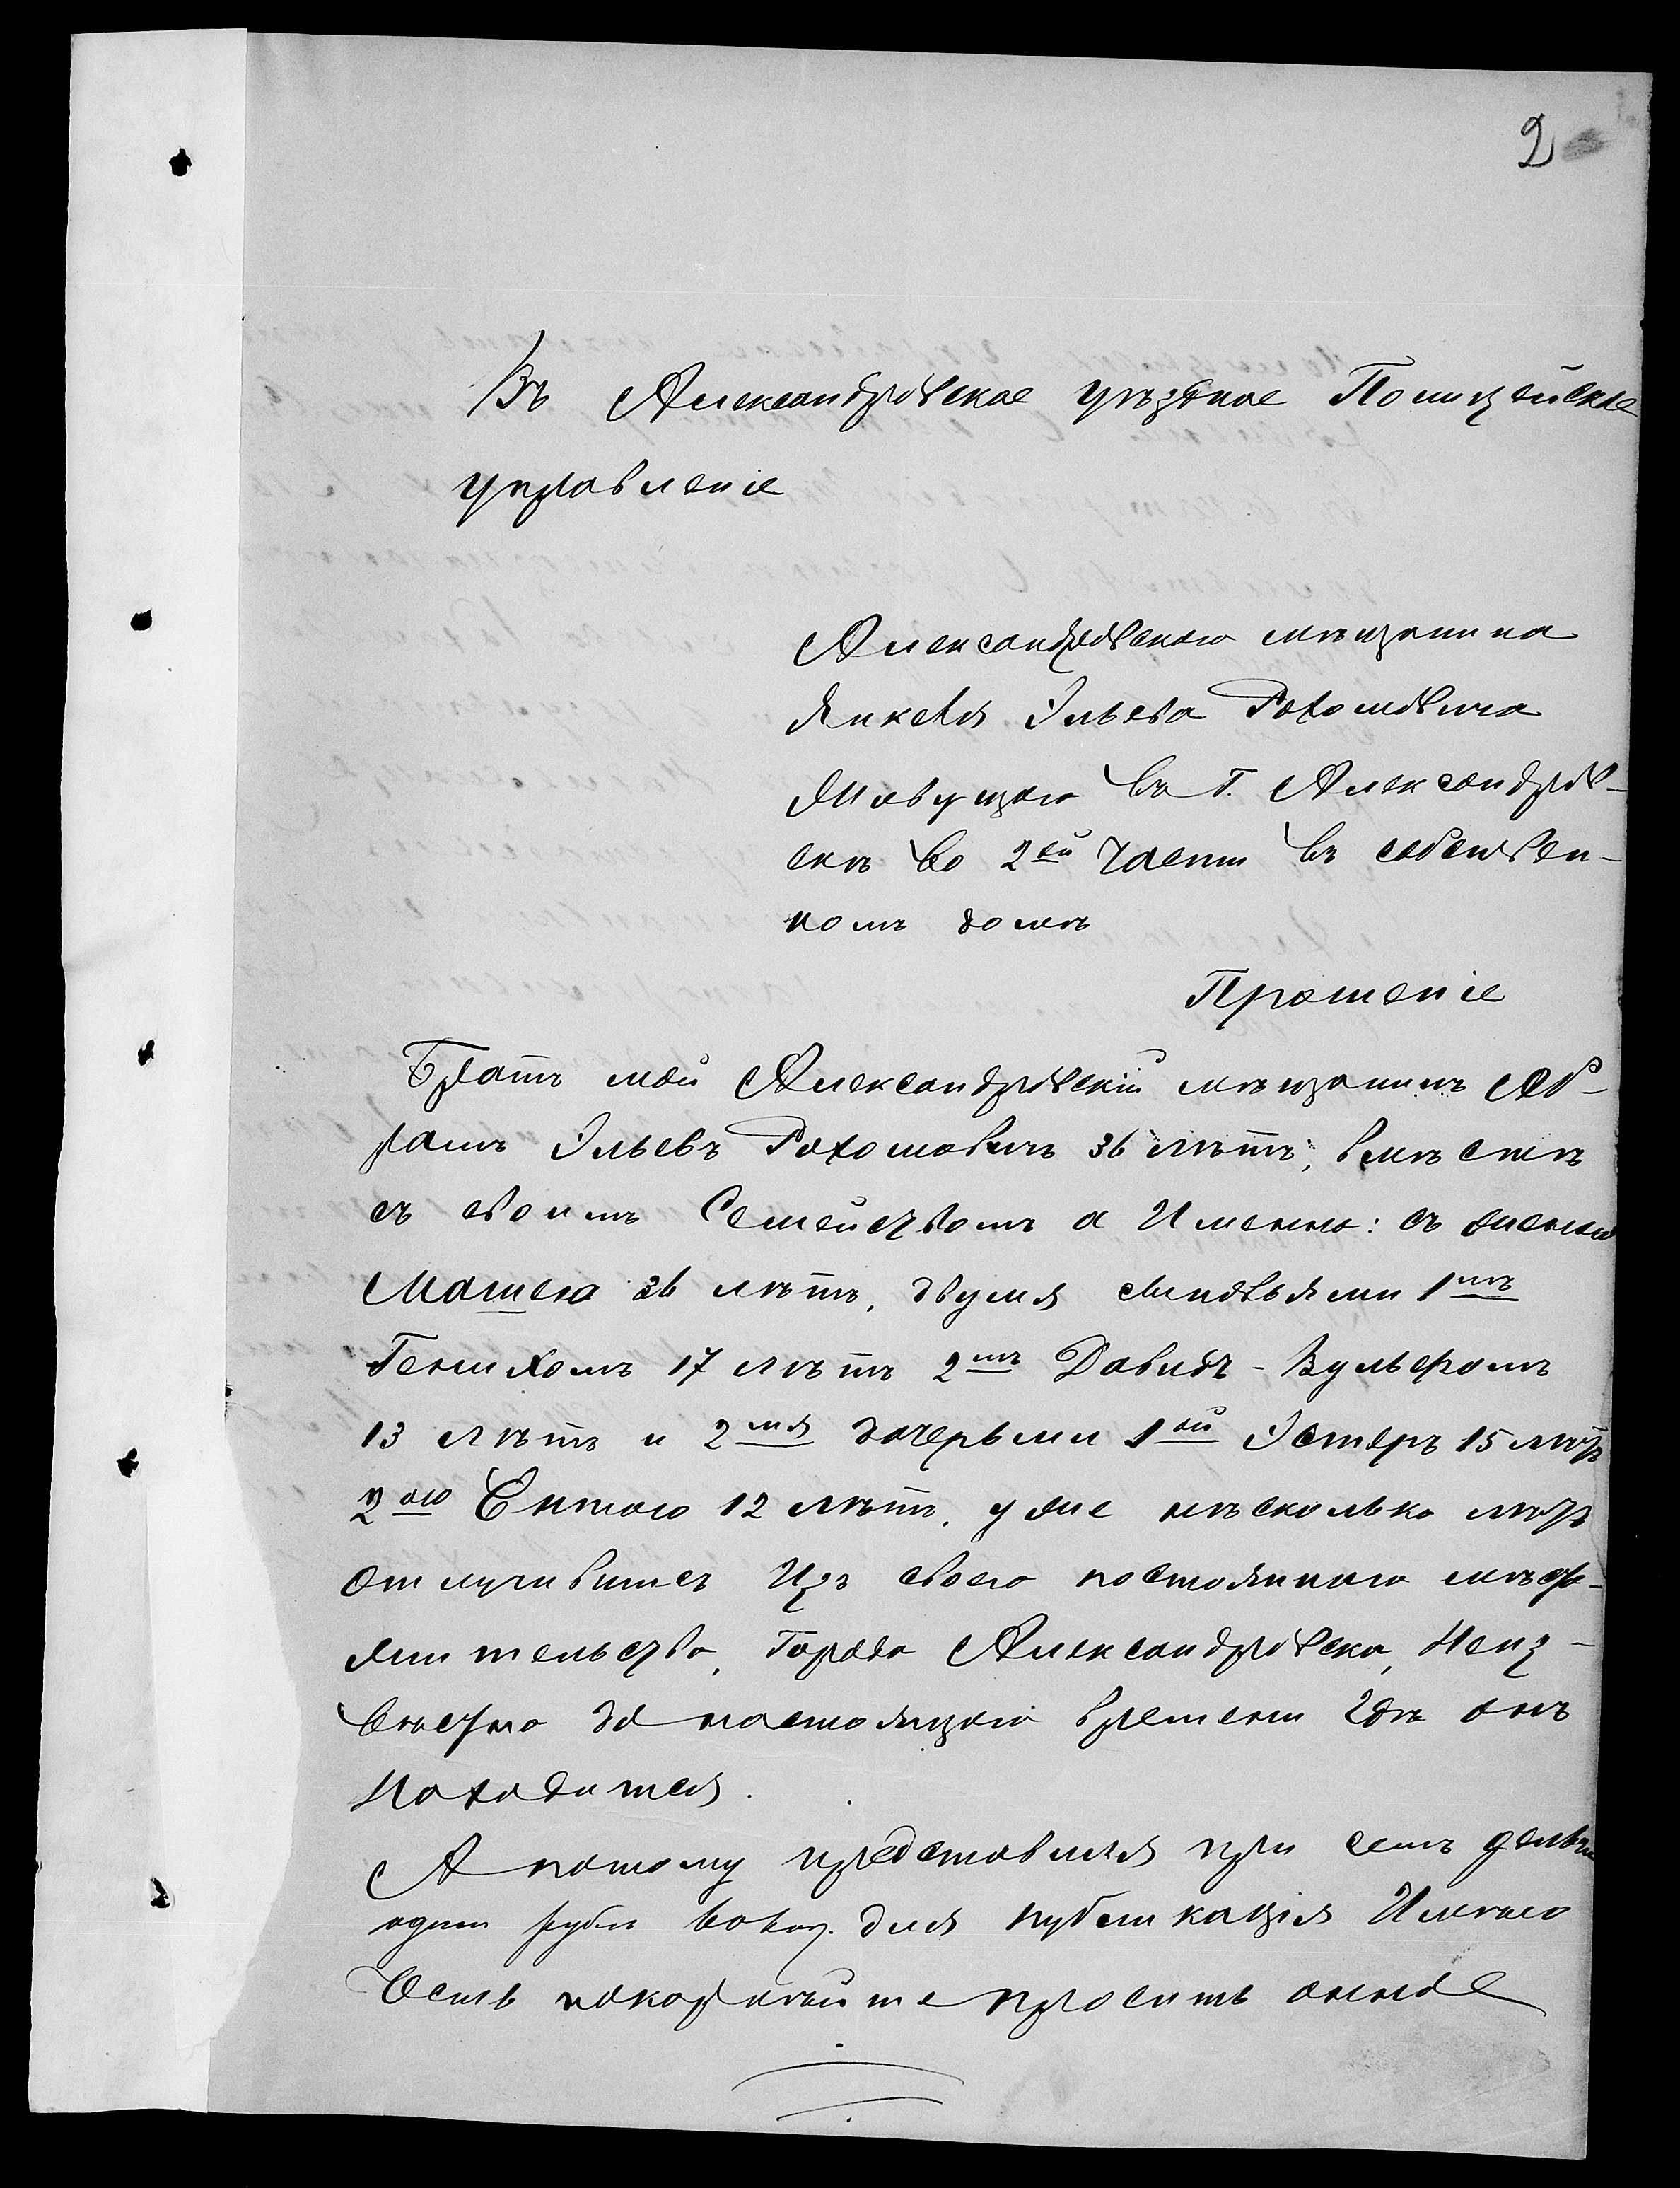 2
Въ Александровское уѣздное Полицейское
управленіе
Александровскаго мѣщанина
Янкеля Эльева Рохомовича
Живущаго въ г. Александров-
скѣ во 2ой части въ собствен-
номъ домѣ
Прошеніе
Братъ мой Александровскій мѣщанинъ Аб-
рамъ Эльевъ Рохомовичъ 36 лѣтъ, вмѣстѣ
съ своимъ Семействомъ а Именно: съ женою
Машею 36 лѣтъ, двумя сыновьями 1мъ
Генихомъ 17 лѣтъ 2мъ Давидъ-Вульфомъ
13 лѣтъ и 2мя дочерьми 1ой Эстеръ 15 лѣтъ
2ою 12 лѣтъ, уже нѣсколько лѣтъ
отлучившись Изъ своего постояннаго мѣсто-
жительства, Города Александровска, Неиз-
вѣстно до настоящаго времени гдѣ онъ
Находится.
А потому представляя при семъ
одинъ рубль для публикація Имѣю
Честь покорнѣйше просить оное